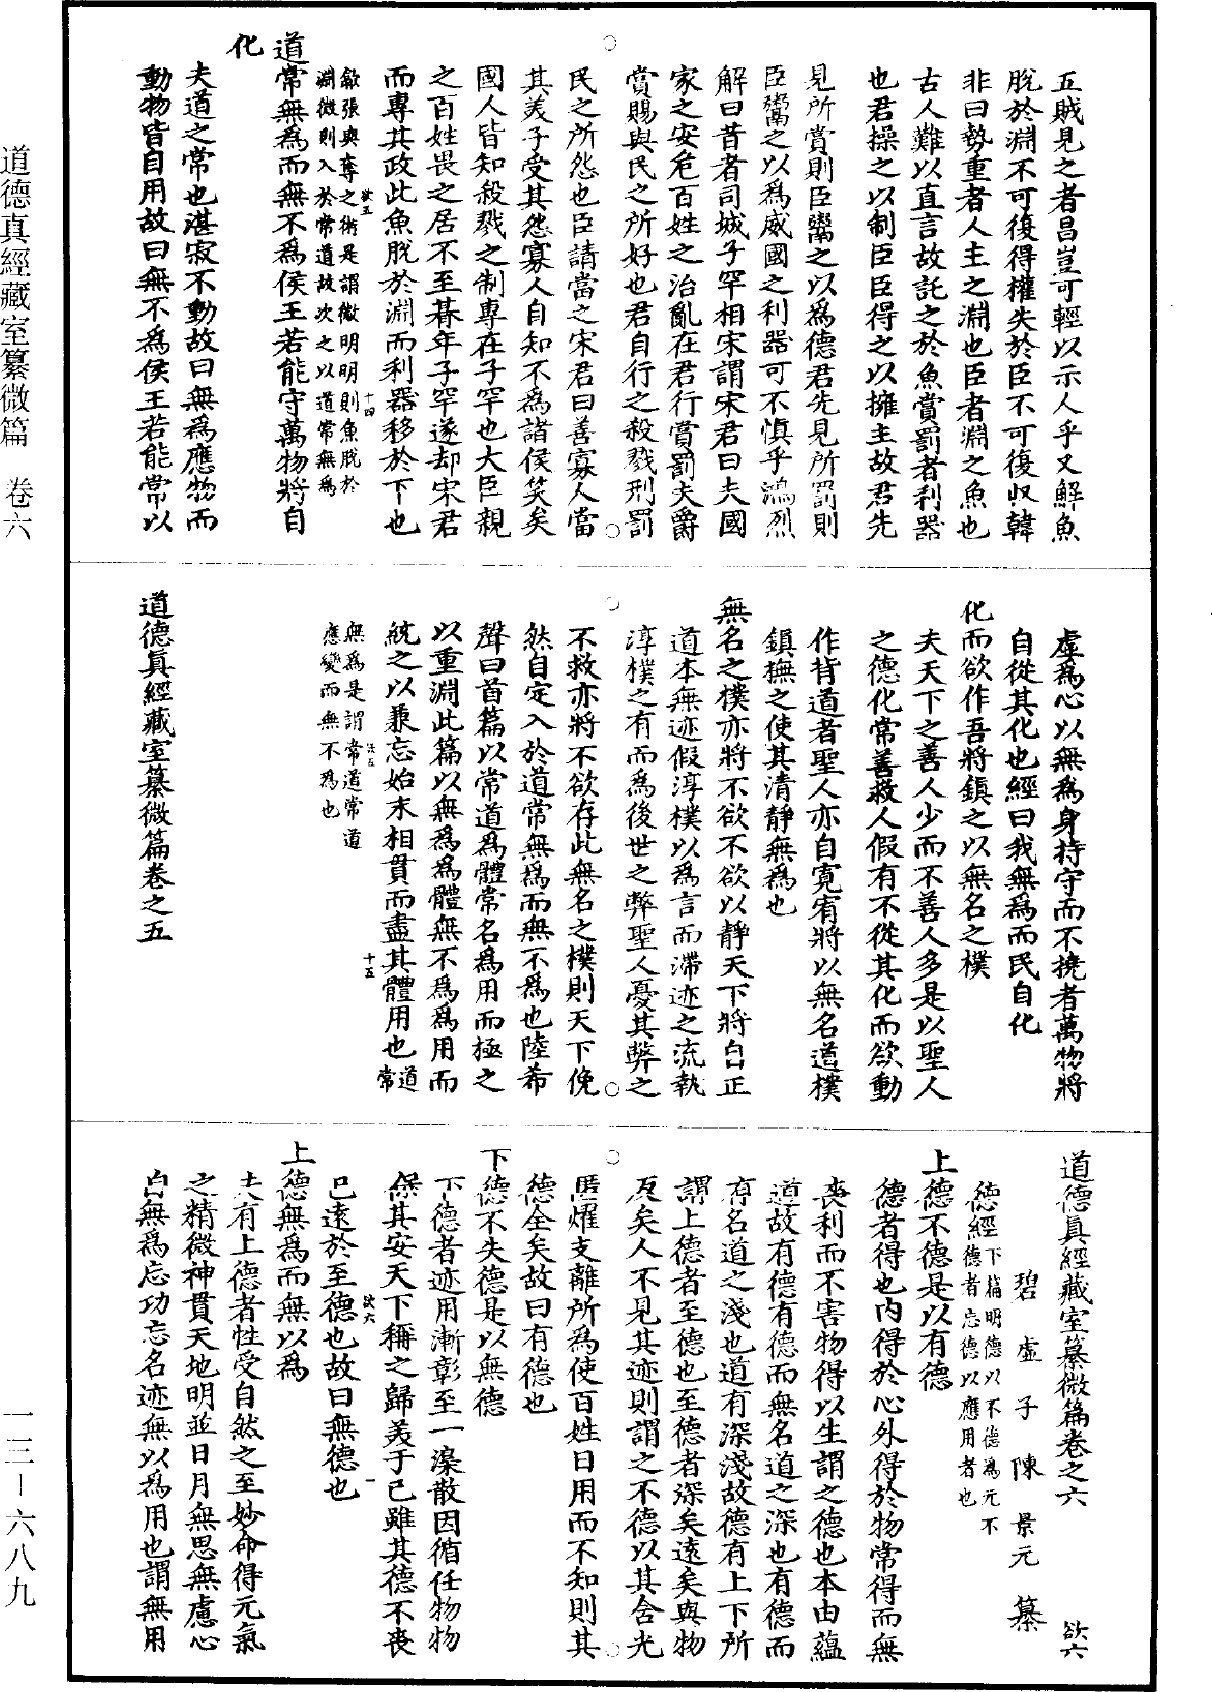 五賊見之者昌豈可輕以示人乎又解魚
脫於淵不可復得權失於臣不可復収韓
非曰勢重者人主之淵也臣者淵之魚也
古人難以直言故託之於魚賞罰者利器
也君操之以制臣臣得之以擁主故君先
見所賞則臣鬻之以爲德君先見所罰則
臣鬻之以爲威國之利器可不慎乎鴻烈
解曰昔者司城子罕相宋謂宋君曰夫國
家之安危百姓之治亂在君行賞罰夫爵
賞賜與民之所好也君自行之殺戮刑罰
民之所怨也臣請當之宋君曰善寡人當
其美子受其怨寡人自知不爲諸侯笑矣
國人皆知殺戮之制專在子罕也大臣親
之百姓畏之居不至朞年子罕遂却宋君
而專其政此魚脫於淵而利器移於下也
欲五 十四
歙張與奪之術是謂微明明則魚脫於
淵微則入於常道故次之以道常無爲
道常無爲而無不爲侯王若能守萬物將自
化
夫道之常也湛寂不動故曰無爲應物而
動物皆自用故曰無不爲侯王若能常以
虛爲心以無爲身持守而不撓者萬物將
自從其化也經曰我無爲而民自化
化而欲作吾將鎮之以無名之樸
夫天下之善人少而不善人多是以聖人
之德化常善救人假有不從其化而欲動
作背道者聖人亦自寬宥將以無名道樸
鎮撫之使其清靜無爲也
無名之樸亦將不欲不欲以靜天下將自正
道本無迹假淳樸以爲言而滯迹之流執
淳樸之有而爲後世之弊聖人憂其弊之
不救亦將不欲存此無名之樸則天下俛
然自定入於道常無爲而無不爲也陸希
聲曰首篇以常道爲體常名爲用而極之
以重淵此篇以無爲爲體無不爲爲用而
統之以兼忘始末相貫而盡其體用也道常
欲五 十五
無爲是謂常道常道
應變而無不爲也
道德眞經藏室纂微篇卷之五
道德眞經藏室纂微篇卷之六 欲六
碧虛子陳景元纂
德經下篇明德以不德爲元不
德者忘德以應用者也
上德不德是以有德
德者得也內得於心外得於物常得而無
喪利而不害物得以生謂之德也本由蘊
道故有德有德而無名道之深也有德而
有名道之淺也道有深淺故德有上下所
謂上德者至德也至德者深矣遠矣與物
反矣人不見其迹則謂之不德以其含光
匿燿支離所爲使百姓日用而不知則其
德全矣故曰有德也
下德不失德是以無德
下德者迹用漸彰至一澡散因循任物物
保其安天下稱之歸美于已雖其德不喪
欲六 一
已遠於至德也故曰無德也
上德無爲而無以爲
夫有上德者性受自然之至妙命得元氣
之精微神貫天地明並日月無思無慮心
自無爲忘功忘名迹無以爲用也謂無用
道德真經藏室纂微篇 卷六
一三—六八九